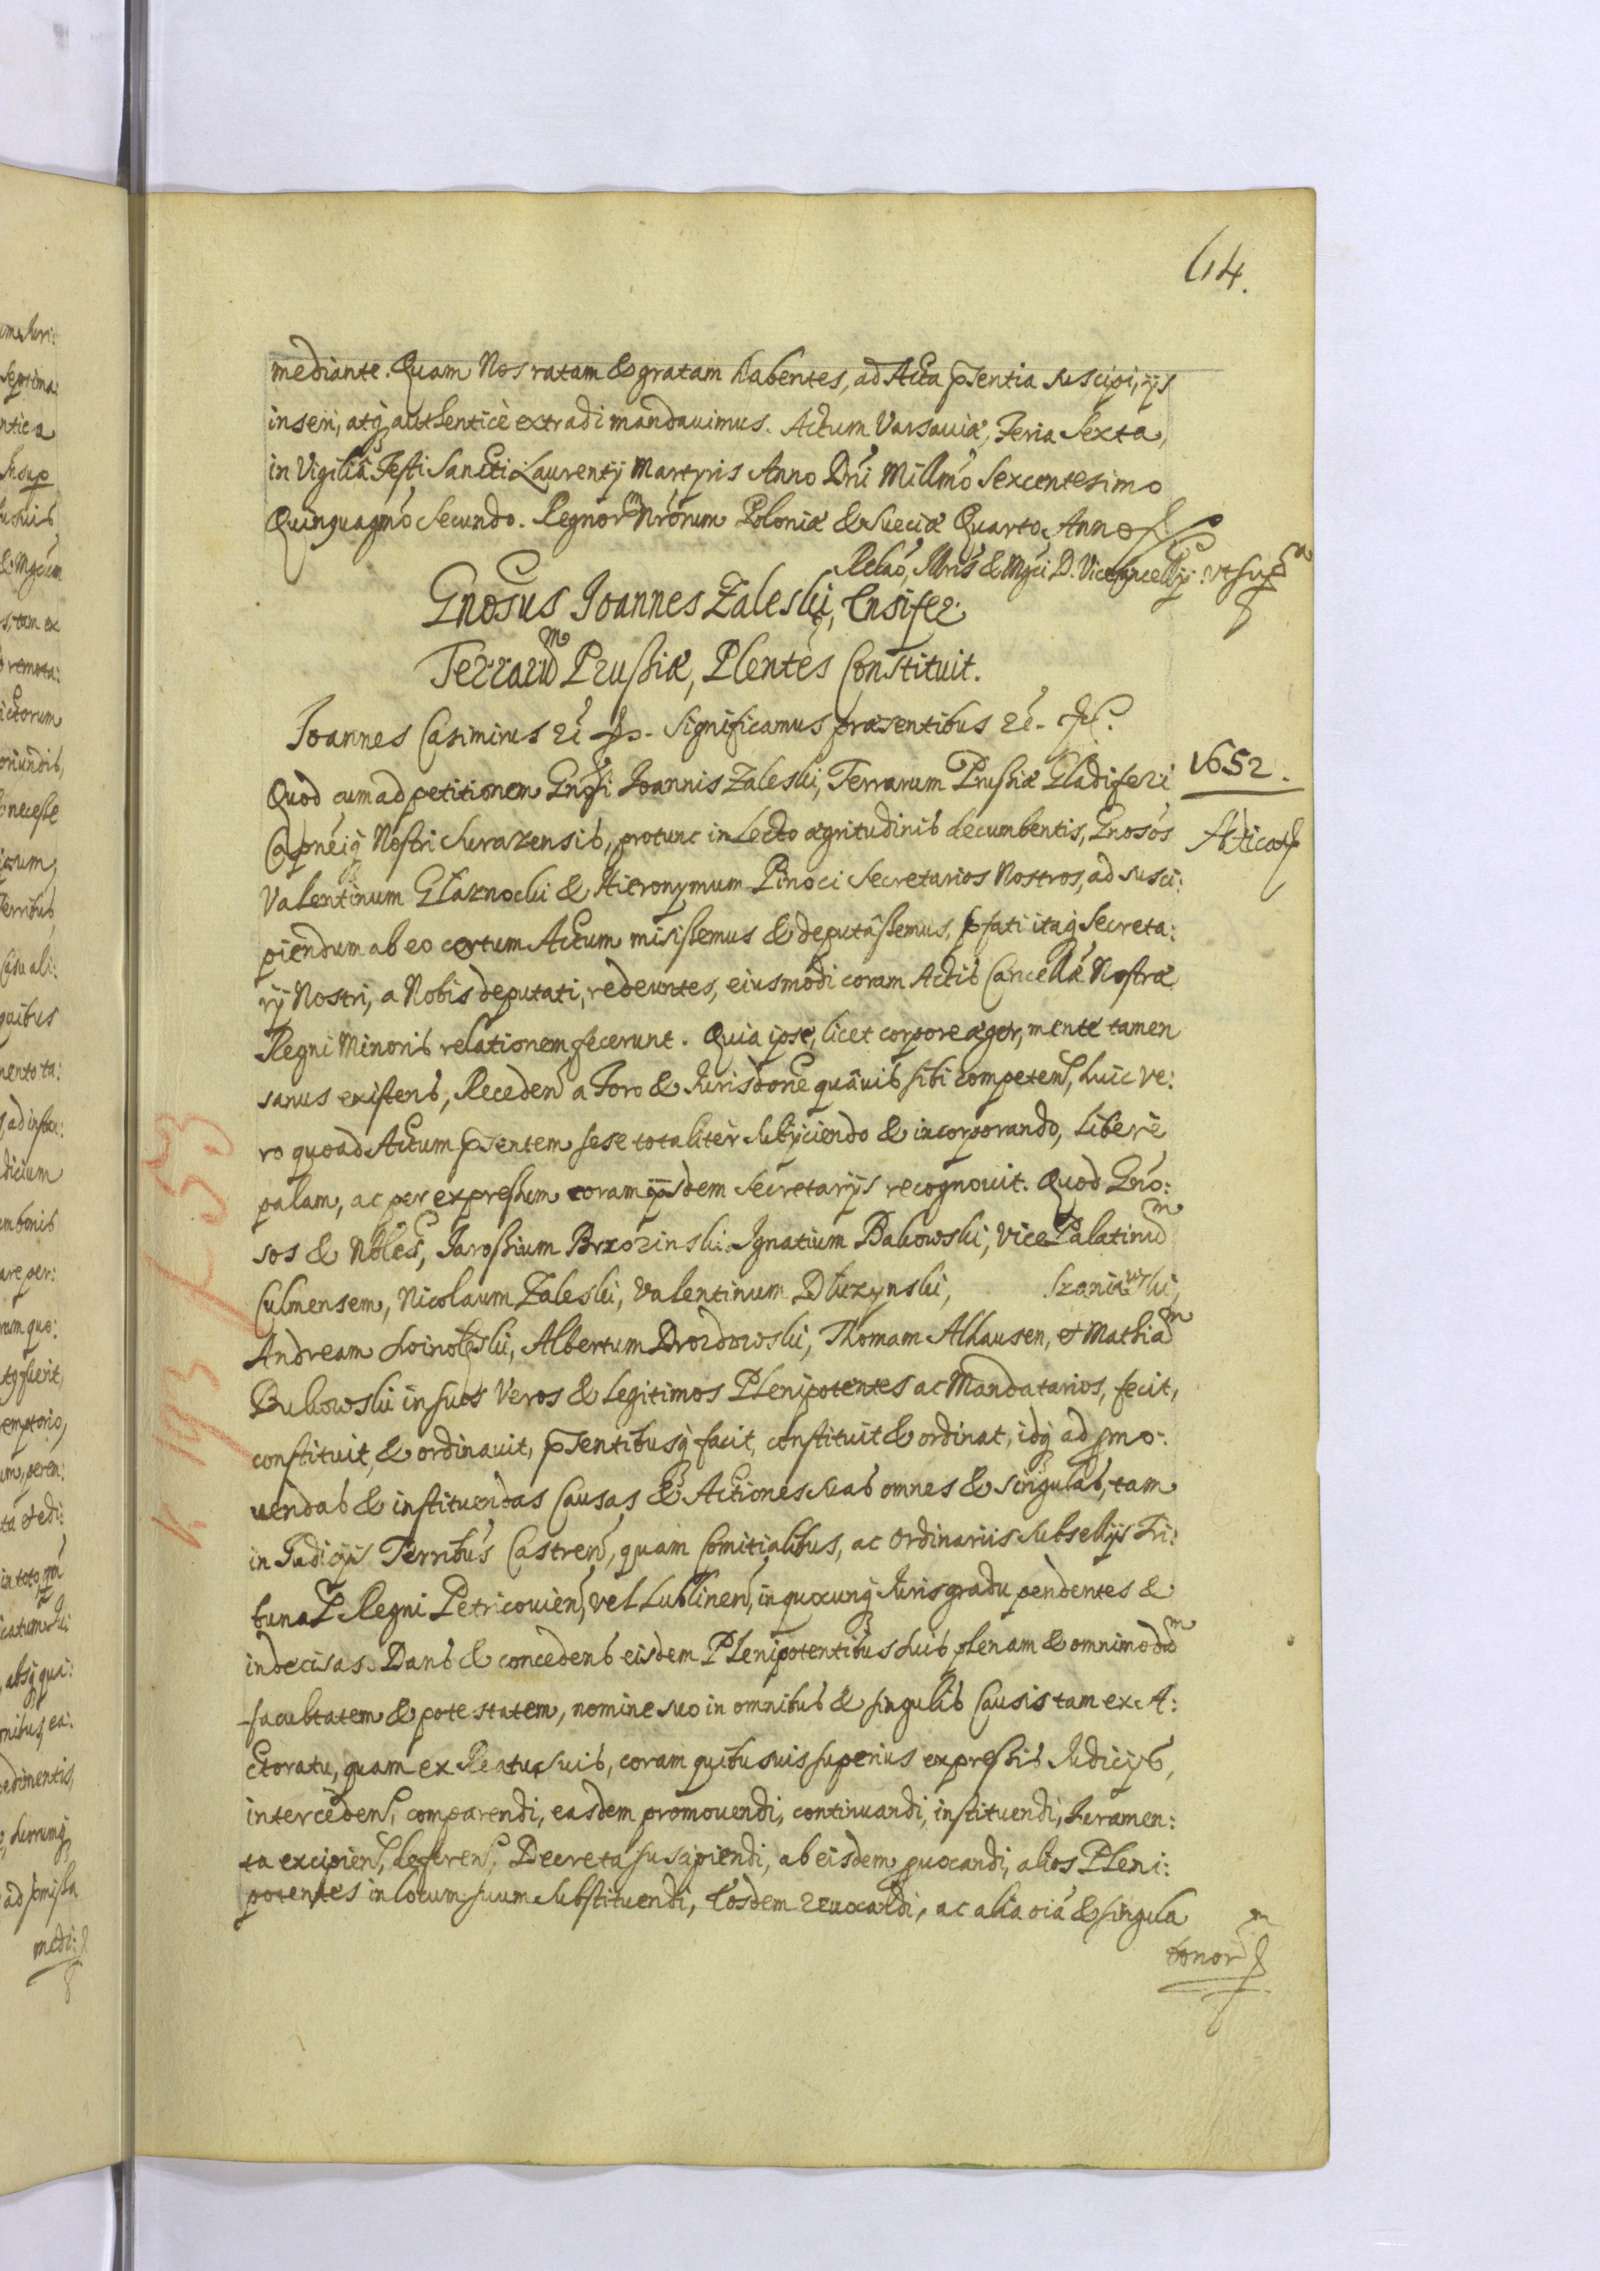 614.
mediante. Quam Nos ratam & gratam habentes, ad Acta pntia suscipi, ijs
inseri, atq, authenticè extradi mandavimus. Actum Varsaviæ, Feria Sexta,
in Vigiliâ Festi Sancti Laurentij Martyris Anno Dnī Millmō Sexcentesimo
Quinquagmō Secundo. Regnorm Nrōrum Poloniæ & Sueciæ Quarto, Anno
Relaō, Illris & Mgci D. Vicecancellrij. vt supra
Gnosus Joannes Zaleski, Ensifer
Terrarum Prussiæ, Plentes Constituit.
Joannes Casimirus Significamus præsentibus
Quod cum ad petitionem Gnosi Joannis Zaleski, Terrarum Prussiæ Gladiferi
1652.
Capneiq Nostri Surazensis, protunc in Lecto ægritudinis decumbentis, Gnosos
Valentinum Głaznocki & Hieronymum Pinoci Secretarios Nostros, ad susci:
piendum ab eo certum Actum misissemus & deputâssemus, pfati itaq Secreta:
rij Nostri, a Nobis deputati, redeuntes, eiusmodi coram Actis Cancellæ Nostræ
Regni Minoris relationem fecerunt. Quia ipse, licet corpore æger, mente tamen
sanus existens, Receden a Foro & Jurisdone quâvis sibi competen, huic ve:
ro quoad Actum pntem sese totaliter subijciendo & incorporando, liberè
palam, ac per expressum coram ijsdem Secretarijs recognovit. Quod Gno:
sos & Nbles, Jarossium Brzozinski Ignatium Bakowski, Vice Palatinum
Culmensem, Nicolaum Zaleski, Valentinum Dłuzynski, Szaniawski,
Andream Albertum Drozdowski, Thomam Alhausen, et Mathiam
Bukowski in suos Veros & legitimos Plenipotentes ac Mandatarios, fecit,
constituit, & ordinavit, pntibusq facit, constituit & ordinat, idq ad pmo:
vendas & instituendas Causas & Actiones suas omnes & singulas, tam
in Judicijs Terribus Castren, quam Comitialibus, ac Ordinariis Subsellijs Tri:
bunal Regni Petricovien, vel Lublinen, in quocunq Juris gradu pendentes &
indecisas. Dans & concedens eisdem Plenipotentibus suis plenam & omnimodam
facultatem & potestatem, nomine suo in omnibus & singulis Causis tam ex A:
ctoratu, quam ex Reatu suis, coram quibusvis superius expressis Judicijs,
interceden, comparendi, easdem promovendi, continuandi, instituendi, Juramen:
ta excipien, deferen, Decreta suscipiendi, ab eisdem pvocandi, alios Pleni:
potentes in locum suum substituendi, eosdem revocandi, ac alia oia & singula
bonorm